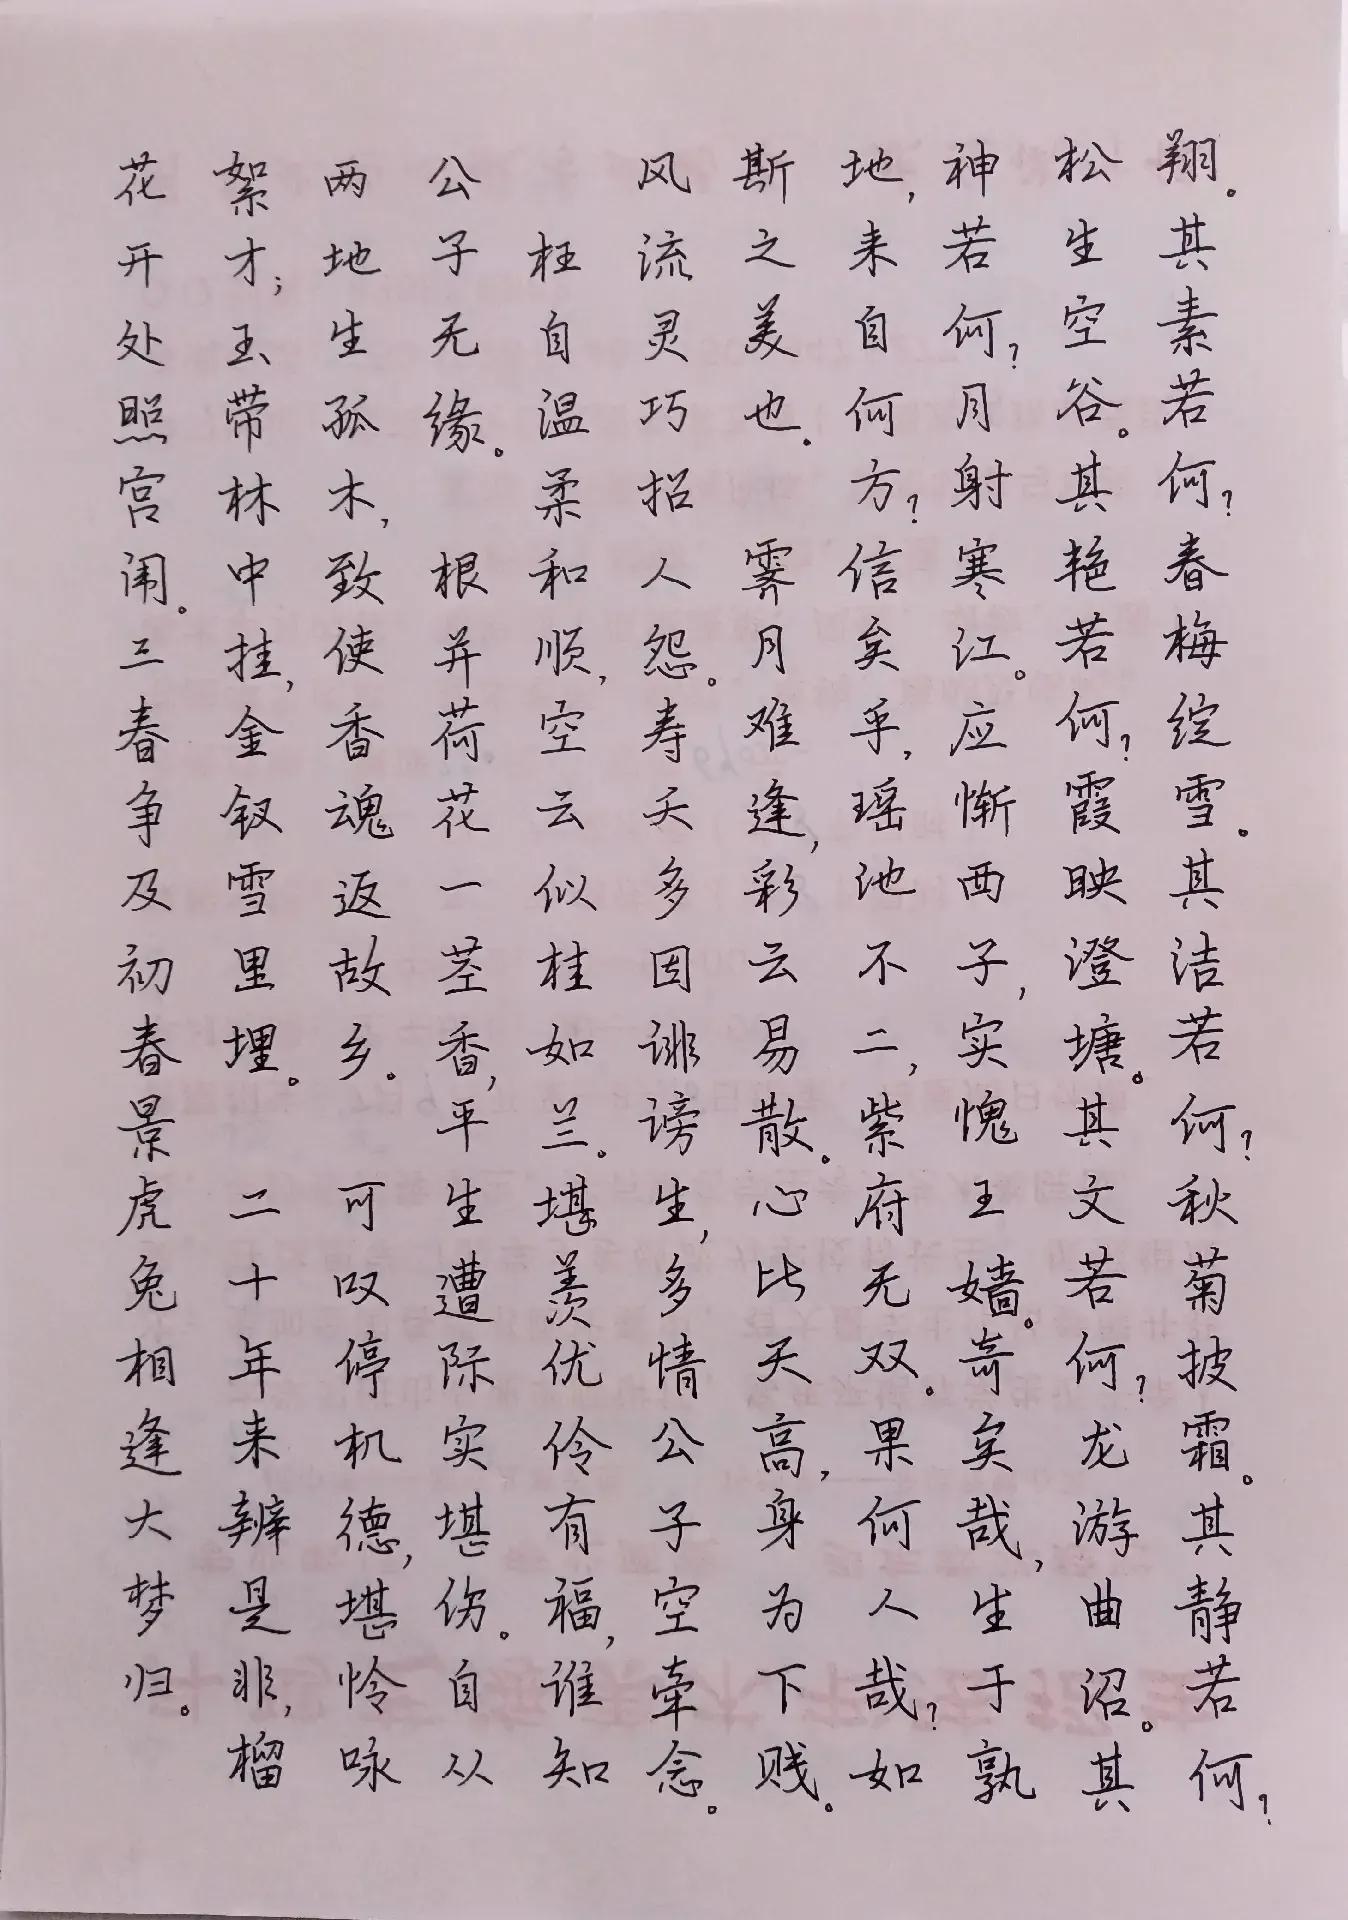 翔。其素若何？春梅绽雪。其洁若何？秋菊披霜。其静若何？
松生空谷。其艳若何？霞映澄塘。其文若何？龙游曲沼。其
神若何？月射寒江。应惭西子，实愧王嫱。奇矣哉，生于孰
地，来自何方？信矣乎，瑶池不二，紫府无双。果何人哉？如
斯之美也。 霁月难逢，彩云易散。心比天高，身为下贱。
风流灵巧招人怨。寿夭多因诽谤生，多情公子空牵念。
枉自温柔和顺，空云似桂如兰。堪羡优伶有福，谁知
公子无缘。 根并荷花一茎香，平生遭际实堪伤。自从
两地生孤木，致使香魂返故乡。 可叹停机德，堪怜咏
絮才；玉带林中挂，金钗雪里埋。 二十年来辨是非，榴
花开处照宫闱。三春争及初春景虎兔相逢大梦归。